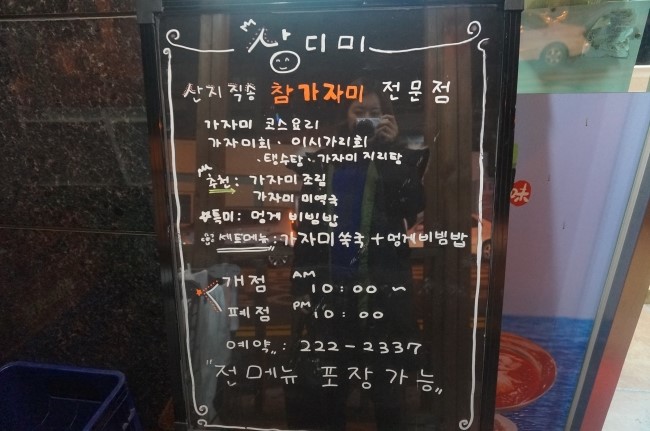 상디미
산지직송 참가자미 전문점
가자미 코스요리
가자미회 · 이시가리회
· 탱수탕 · 가자미 지리탕
추천 : 가자미조림
가자미 미역국
☆특미 : 멍게 비빔밥
세트메뉴 : 가자미쑥국 + 멍게비빔밥
개점 AM 10:00 ~
폐점 PM 10:00
예약〃: 222-2337
"전메뉴 포장가능"
味